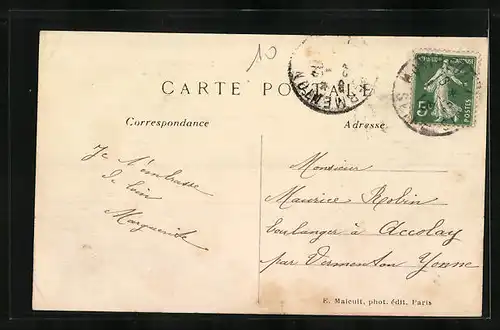 10
CARTE POSTALE
VERMENTON
Correspondance
Adresse
5
POSTES
Je t'embrasse
de loin
Marguerite
Monsieur
Maurice Robin
boulanger à Accolay
par Vermenton Yonne
E. Malcuit, phot. édit. Paris